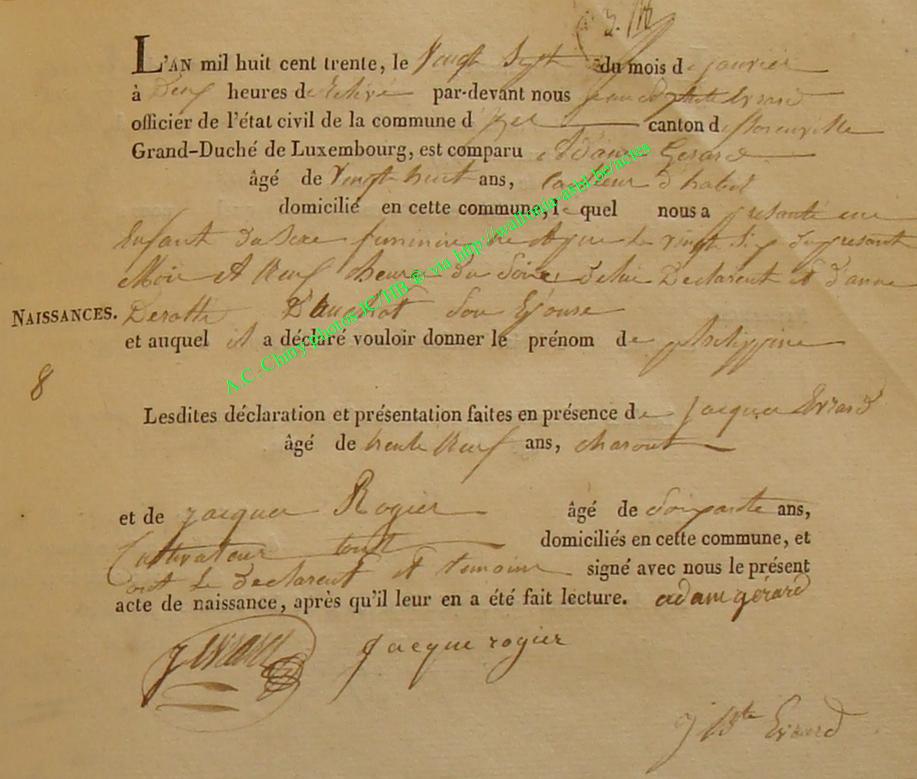 L'AN mil huit cent trente, le Vingt Sept du mois de janvier
à Deux heures de Relevé par-devant nous jean Bptte Evrard
officier de l'état civil de la commune d canton de florenville
Grand-Duché de Luxembourg, est comparu Adam Gerard
âgé de Vingt huit ans, tailleur d'habit
domicilié en cette commune, le quel nous a presanté une
Enfant du Sexe feminine née le vingt Six du presant
Mois a Neuf heure du Soire de lui Declarent et d'anne
NAISSANCES. Son Epouse
et auquel il a déclaré vouloir donner le prénom de philippine
8
Lesdites déclaration et présentation faites en présence de jacques Evrard
âgé de trente Neuf ans,
et de jacques Rogier âgé de Soixante ans,
Cultivateur tout domiciliés en cette commune, et
ont le Declarent et temoins signé avec nous le présent
acte de naissance, après qu'il leur en a été fait lecture. adam gérard
j evrard jacque rogier
j Bte Evrard
A.C. Chiny photos JC/HB ® via http://wallonia-asbl.be/actes